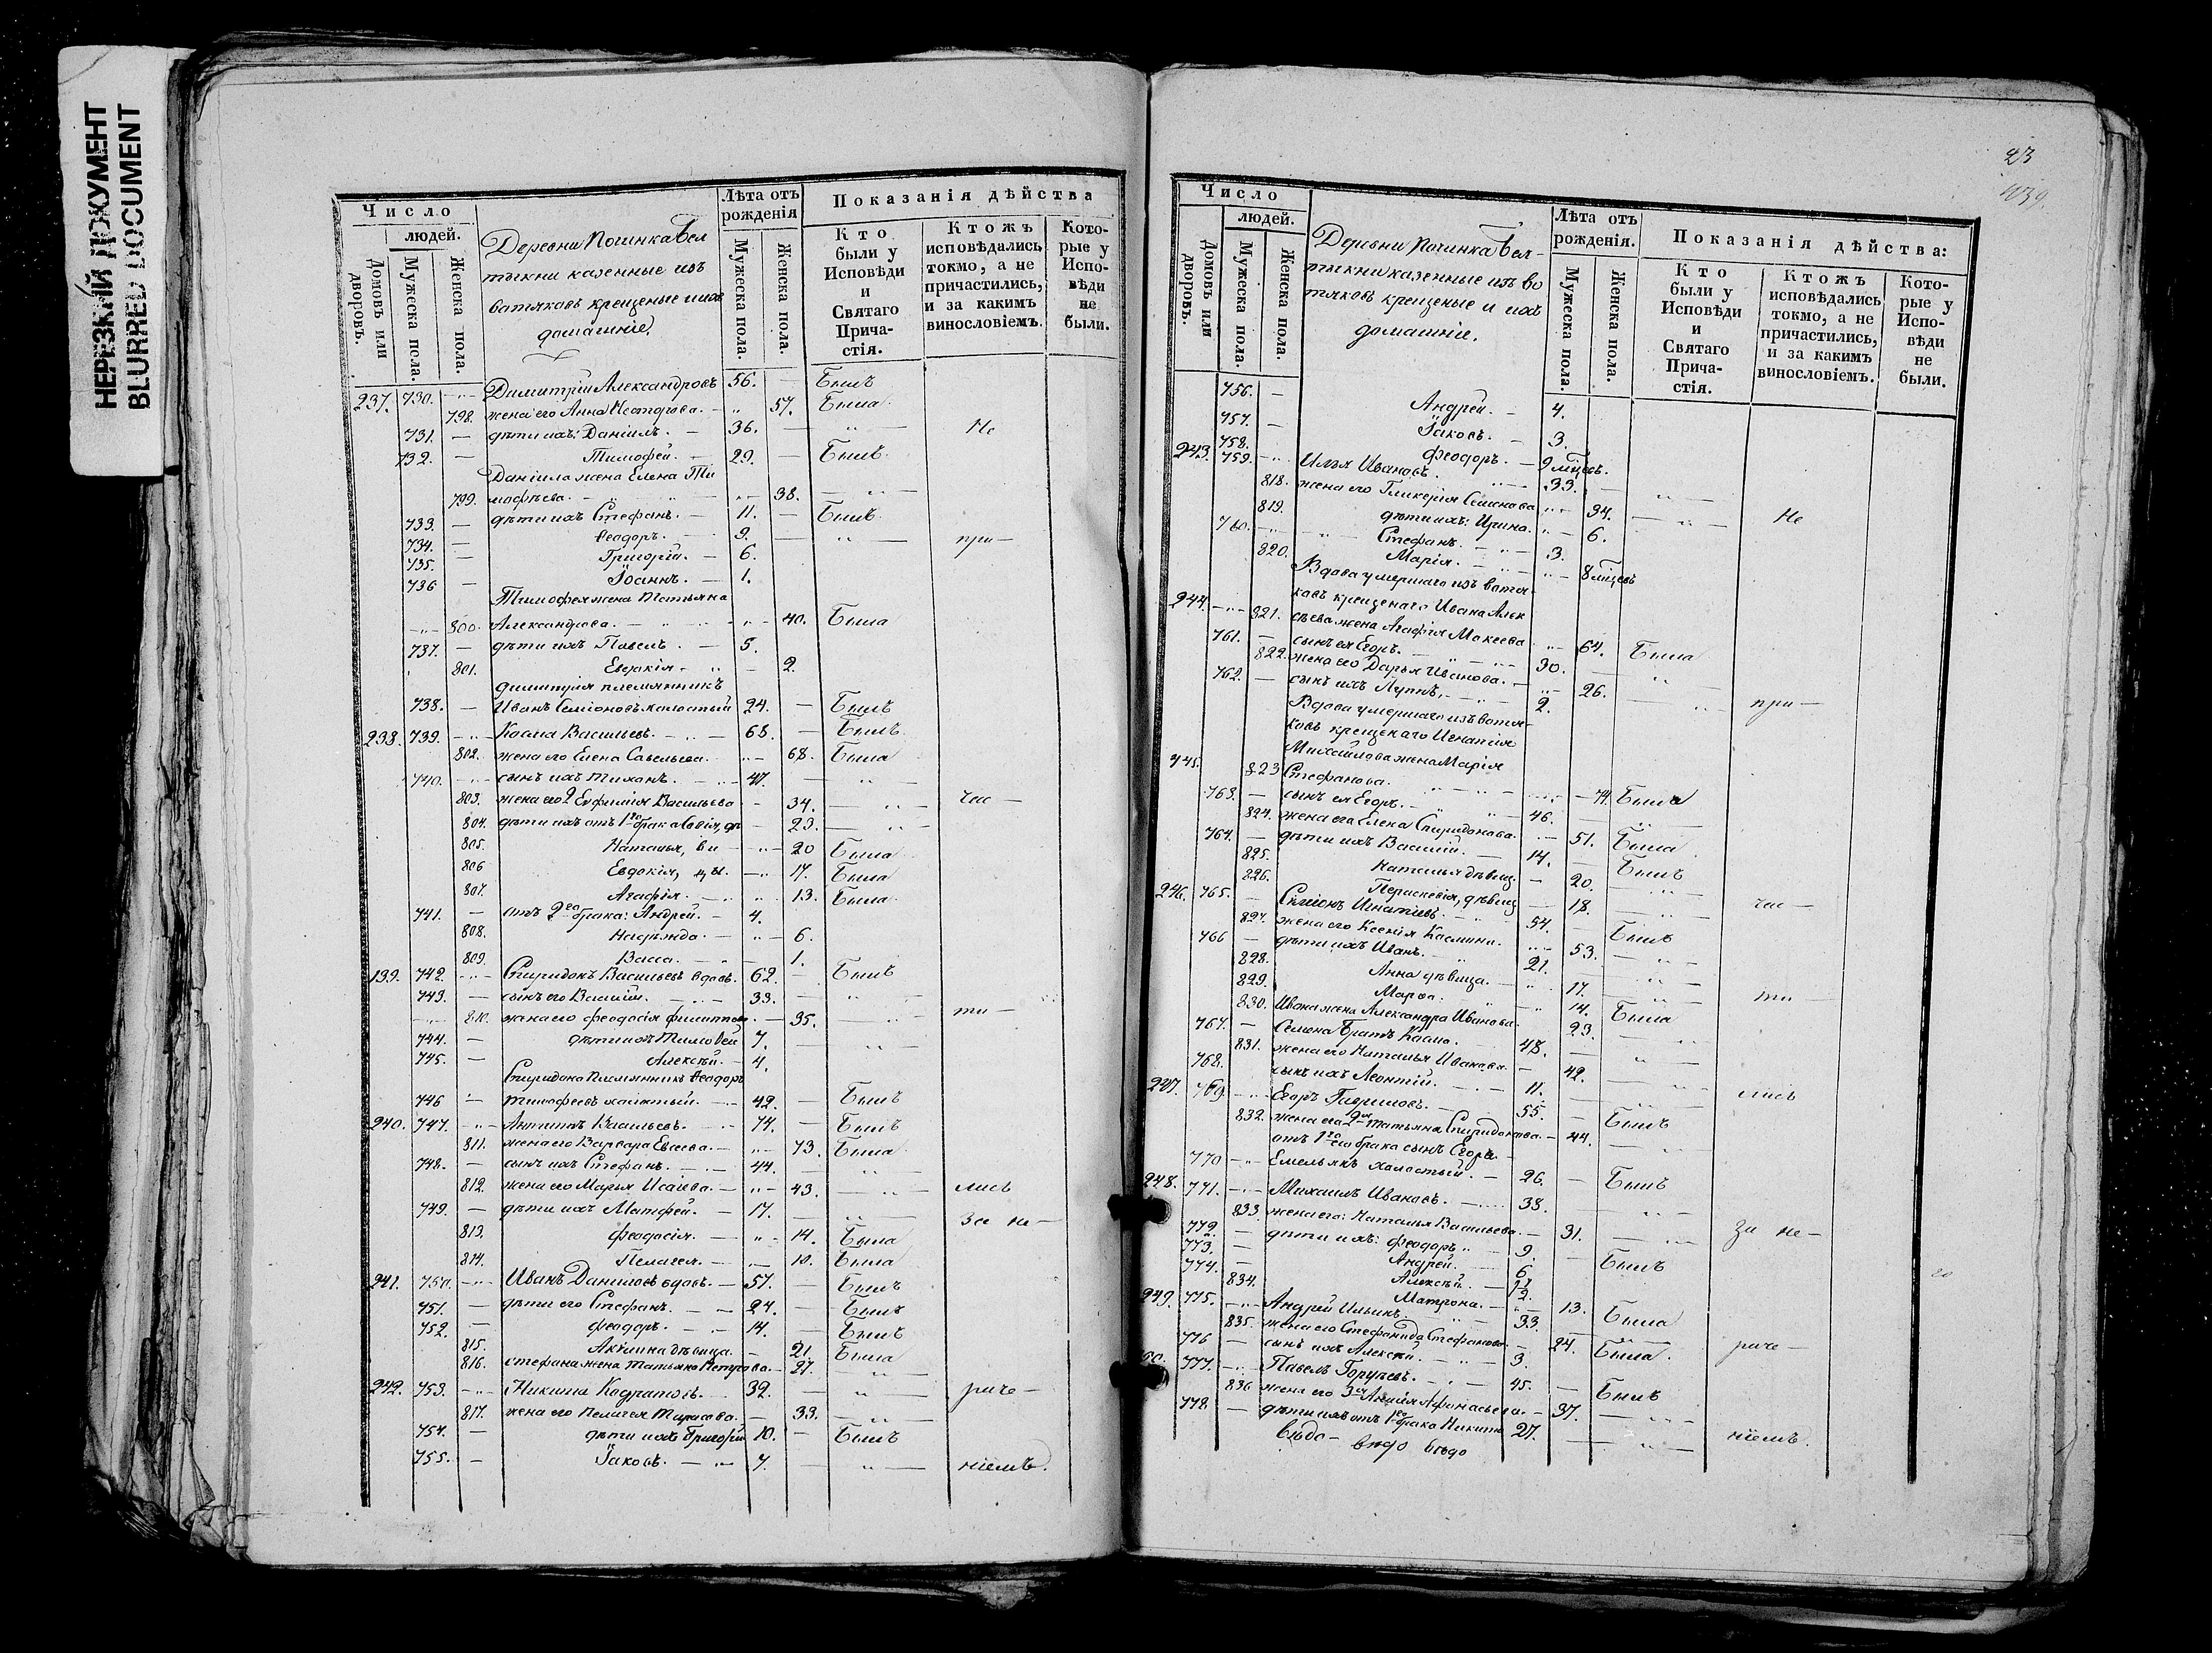 НЕРЕЗКИЙ ДОКУМЕНТ
BLURRED DOCUMENT
Число
людей.
Домовъ или дворовъ.
Мужеска пола.
Женска пола.
Деревни Починка Вел
тыкни казенные изъ
вотяковъ крещеные и ихъ
домашніе.
Лѣта отъ рожденія
Мужеска пола.
Женска пола.
Показанія дѣйства
Кто были у Исповѣди и Святаго Прича-стія.
Ктожъ исповѣдались токмо, а не причастились, и за какимъ винословіемъ.
Кото-рые у Испо-вѣди не были.
237. 730. Димитрій Александровъ 56. — Былъ
798. жена его Анна Несторова. — 57. Была
731. — дѣти ихъ: Даніилъ. — 36. — „ — Не
732. — Тимофей. — 29. — Былъ
Даніила жена Елена Ти
799. мофѣева. — 38. — „ —
733. — дѣти ихъ Стефанъ. — 11. — Былъ
734. — Ѳеодоръ. 9. — „ — при —
735. — Григорій. — 6.
736 — Іоаннъ. — 1.
Тимофея жена Татьяна
800. Александрова. — 40. Была
737. — дѣти ихъ Павелъ. — 5.
801. Евдокія — 2.
Димитрія племянникъ
738. — Иванъ Симіоновъ холостый 24. — Былъ
238. 739. Косма Васильевъ. — 68. — Былъ
802. жена его Елена Савельева. — 68. Была
740. сынъ ихъ Тихонъ. — 47. — „ —
803. жена его 2 Евфимія Васильева — 34. — „ — час —
804. дѣти ихъ отъ 1го брака Софія, дѣ — 23. — „ —
805. Наталья, ви — 20 Была
806 Евдокія, цы. — 17. Была
807. Агафія. — 13. Была
741. — отъ 2го брака: Андрей. — 4.
808. Надѣжда. — 6.
809. Васса. — 1.
139. 742. Спиридонъ Васильевъ вдовъ. 62. — Былъ
743. — сынъ его Василій. — 33. — „ —
810. жена его Феодосія Филиппова — 35. — „ — ти —
744. — дѣти ихъ Тимофей 7. — „ —
745. — Алексѣй. — 4.
Спиридона племянникъ Ѳеодоръ
746 Тимофеевъ холостый. — 42. — Былъ
240. 747. Антипъ Васильевъ. 74. — Былъ
811. жена его Варвара Евсеева. — 73. Была
748. — сынъ ихъ Стефанъ. — 44. — „ —
812. жена его Марья Исаева. — 43. — „ — лись
749. — дѣти ихъ Матфей. — 17. — „ — За не —
813. Феодосія. — 14. Была
814. Пелагея. — 10. Была
241. 750. Иванъ Даниловъ вдовъ. — 57. — Былъ
751. — дѣти его Стефанъ. — 24. — Былъ
752. — Феодоръ. — 14. — Былъ
815. Акулина дѣвица. — 21. Была
816. Стефана жена Татьяна Петрова. — 27. — „ —
242. 753. Никита Кодратовъ. 32. — „ — раче —
817. жена его Пелагея Тарасова. — 33. — „ —
754. — дѣти ихъ Григорій 10. — Былъ
755. — Іаковъ. — 7. — „ — ніемъ.
23
1039.
Число
людей.
Домовъ или дворовъ.
Мужеска пола
Женска пола.
Деревни Починка Вел-
тыкни казенные изъ во
тяковъ крещеные и ихъ
домашніе.
Лѣта отъ рожденія.
Мужеска пола.
Женска пола.
Показанія дѣйства:
Кто были у Исповѣди и Святаго Прича-стія.
Ктожъ исповѣдались токмо, а не причастились, и за какимъ винословіемъ.
Кото-рые у Испо-вѣди не были.
756. — Андрей. — 4.
757. — Іаковъ. — 3.
758. Феодоръ. — 9 мѣцевъ.
243. 759. Илья Ивановъ. 33. — „ —
818. жена его Гликерія Семенова 34. — „ — Не
819. дѣти ихъ: Ирина. 6.
760. Стефанъ. — 3.
820. Марія. — 8 мѣцевъ
Вдова умершаго изъ вотя-
ковъ крещенаго Ивана Алек
244. 821. сѣева жена Агафія Макеева 64. Была
761. — сынъ ея Егоръ. — 30. — „ —
822. жена его Дарья Иванова. — 26. — „ — при —
762. — сынъ ихъ Луппъ. — 2.
Вдова умершаго изъ вотя-
ковъ крещенаго Игнатія
Михайлова жена Марія
245. 823 Стефанова. — 74. Была
763. — сынъ ея Егоръ. — 46. — „ —
824. жена его Елена Спиридонова. — 51. Была
764. — дѣти ихъ Василій. — 14. — Былъ
825. Наталья дѣвиц. — 20. — „ —
826. Параскевія, дѣвиц — 18. — „ — час —
246. 765. — Симіонъ Игнатіевъ. — 54. — Былъ
827. жена его Ксенія Касмина. 53. — „ —
766 — дѣти ихъ Иванъ. 21. — „ —
828. Анна дѣвица. — 17. — „ — ти —
829. Марѳа. — 14. Была
830. Ивана жена Александра Иванова. 23. — „ —
767. — Семена братъ Касма. — 48. — „ —
831. жена его Наталья Иванова. — 42. — „ —
768. сынъ ихъ Леонтій. — 11. — „ — лись
247. 769. Егоръ Гавриловъ. — 55. — Былъ
832. жена его 2я Татьяна Спиридонова. — 44. — „ —
отъ 1го его брака сынъ Егора
770 Емельянъ холостый. — 26. — Былъ
248. 771. Михаилъ Ивановъ. — 38. — „ —
833. жена его: Наталья Васильева. — 31. — „ — за не —
772. — дѣти ихъ: Феодоръ — 9. — Былъ
773. — Андрей. — 6
774. — Алексѣй. — 2.
834. Матрона. — 13. Была
249. 775. Андрей Ильинъ. 33. — „ —
835. жена его Стефанида Стефанова. — 24. Была. раче —
776 — сынъ ихъ Алексѣй. — 3.
50. 777. Павелъ Горучевъ. — 45. — Былъ
836 жена его 3я Анисія Афонасьева. — 37. — „ —
778. — дѣти ихъ отъ 1го брака Никита 27. — „ — ніемъ.